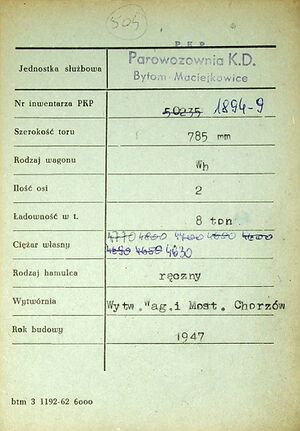 505
PKP
Jednostka służbowa
Parowozownia K.D.
Bytom Maciejkowice
Nr inwentarza PKP 50235 1894-9
Szerokość toru 785 mm
Rodzaj wagonu Wh
Ilość osi 2
Ładowność w t. 8 ton
4770 4800 4700 4680 4600
Ciężar własny 4690 4650 4630
Rodzaj hamulca ręczny
Wytwórnia Wytw. Wag. i Most. Chorzów
Rok budowy 1947
btm 3 1192-62 6000